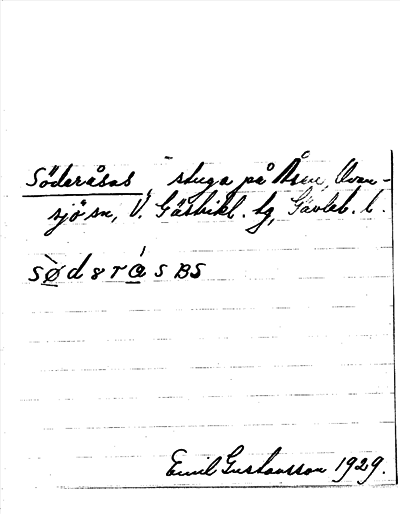 Söderåsas, stuga på Åsen, Ovan-
sjö sn, V. Gästrikl. hg, Gävleb. l.
sø̀dɛrásBS
Emil Gustavsson 1929.